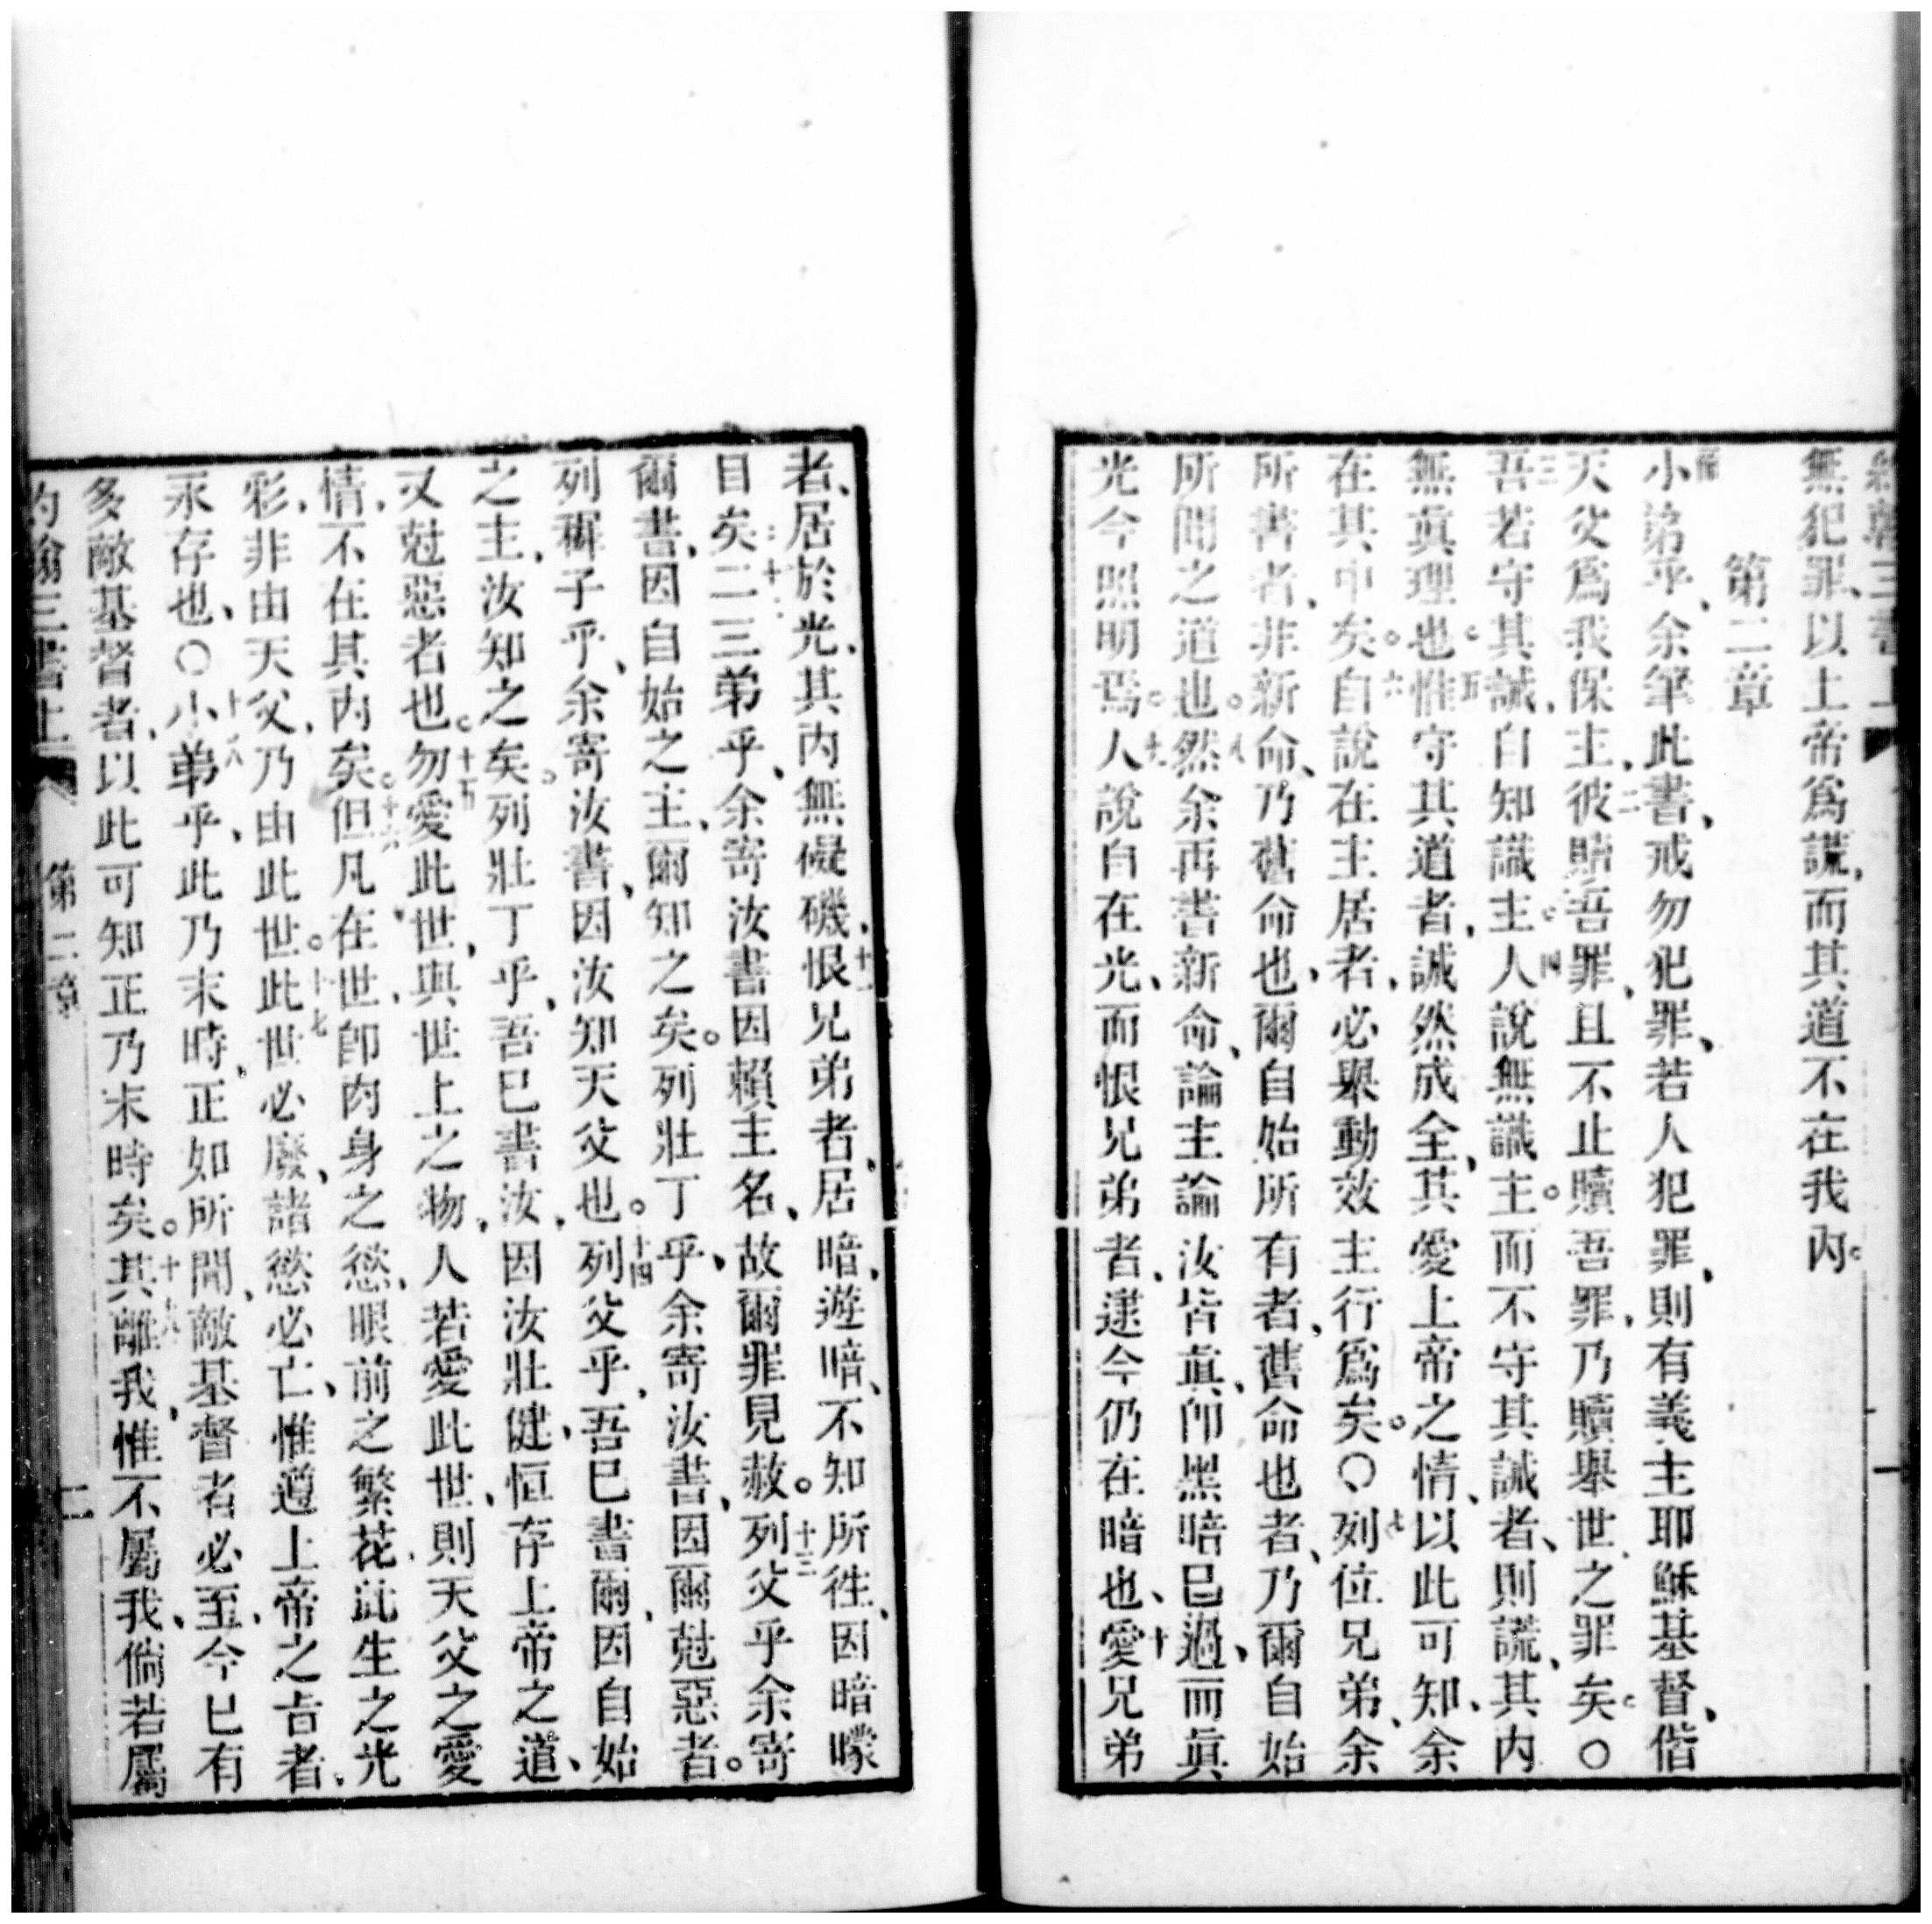 無犯罪、以上帝爲謊、而其道不在我內。
第二章
小弟乎、余筆此書、戒勿犯罪、若人犯罪、則有義主耶穌基督、偕
天父爲我保主、二彼贖吾罪、且不止贖吾罪、乃贖舉世之罪矣。○
三吾若守其誡、自知識主。四人說無識主。而不守其誡者、則謊、其內
無眞理也。五惟守其道者、誠然成全、其愛上帝之情、以此可知、余
在其中矣。六自說在主居者、必舉動效主行爲矣。○七列位兄弟、余
所書者、非新命、乃舊命也、爾自始所有者、舊命也者、乃爾自始
所聞之道也。八然余再書新命、論主論汝皆眞、卽黑暗已過、而眞
光今照明焉。九人說自在光、而恨兄弟者、逮今仍在暗也、十愛兄弟
者、居於光、其內無礙磯、十一恨兄弟者、居暗、遊暗、不知所徃、因暗曚
目矣十二二三弟乎、余寄汝書因賴主名、故爾罪見赦。十三列父乎余寄
爾書、因自始之主、爾知之矣。列壯丁乎、余寄汝書、因爾尅惡者。
列穉子乎、余寄汝書、因汝知天父也。十四列父乎、吾已書爾、因自始
之主、汝知之矣。列壯丁乎、吾已書汝、因汝壯健、恒存上帝之道、
又尅惡者也。十五勿愛此世、與世上之物、人若愛此世、則天父之愛
情、不在其內矣。十六但凡在世、卽肉身之慾、眼前之繁花、此生之光
彩、非由天父、乃由此世。十七此世必廢、諸慾必亡、惟遵上帝之旨者、
永存也、○十八小弟乎、此乃末時、正如所聞、敵基督者必至、今已有
多敵基督者、以此可知正乃末時矣。十九其離我、惟不屬我、倘若屬
約翰三書上 第二章 二